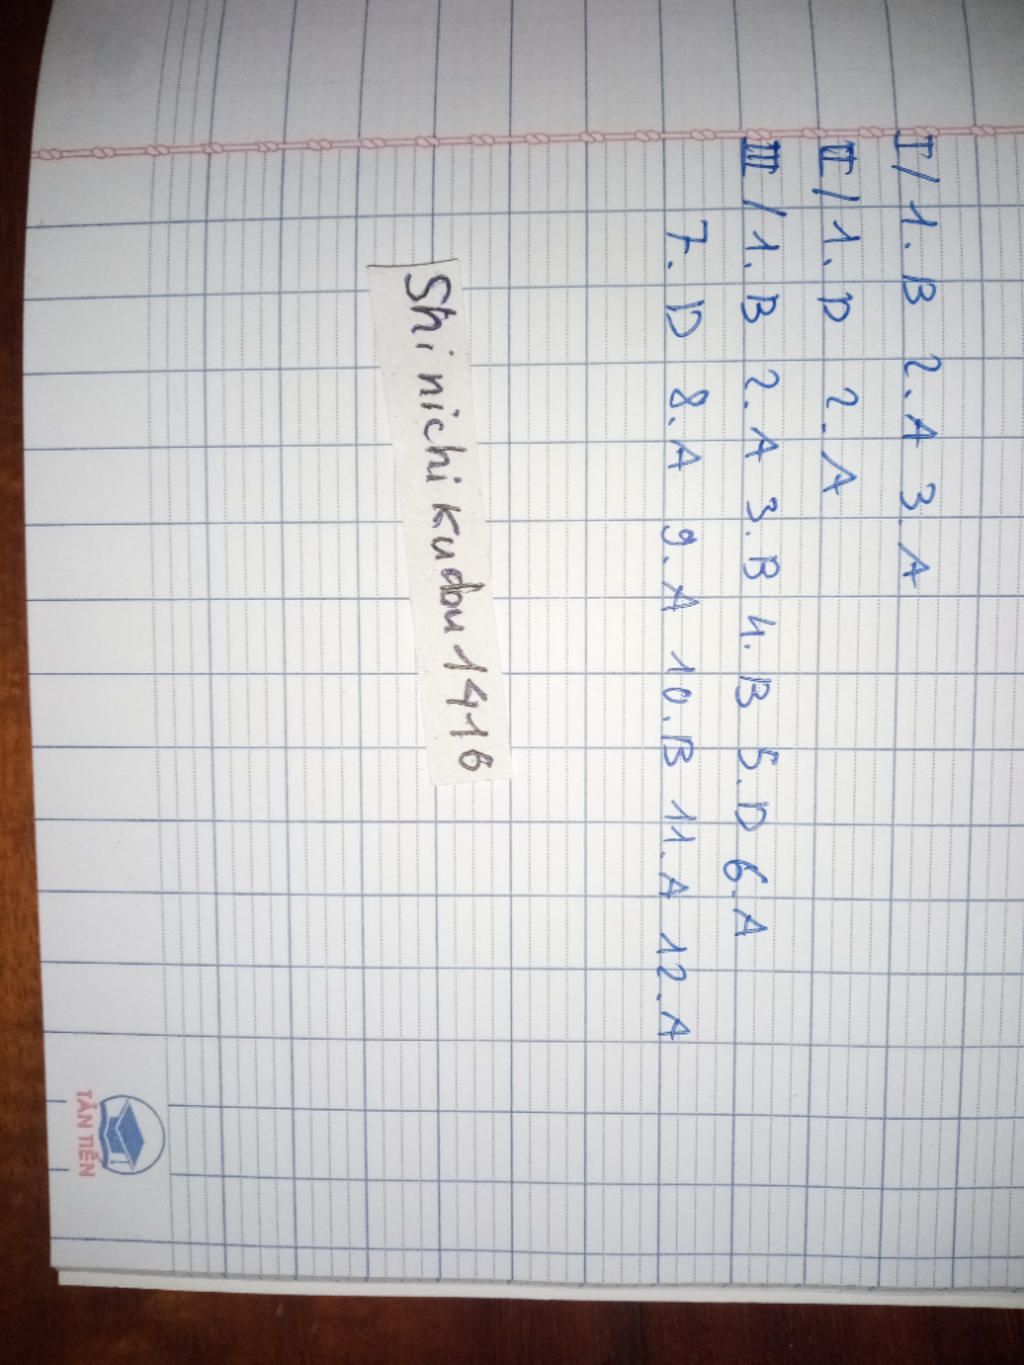 I/ 1. B 2. A 3. A
II/ 1. D 2. A
III/ 1. B 2. A 3. B 4. B 5. D 6. A
7. D 8. A 9. A 10. B 11. A 12. A
Shinichi Kudou 1416
TÂN TIẾN